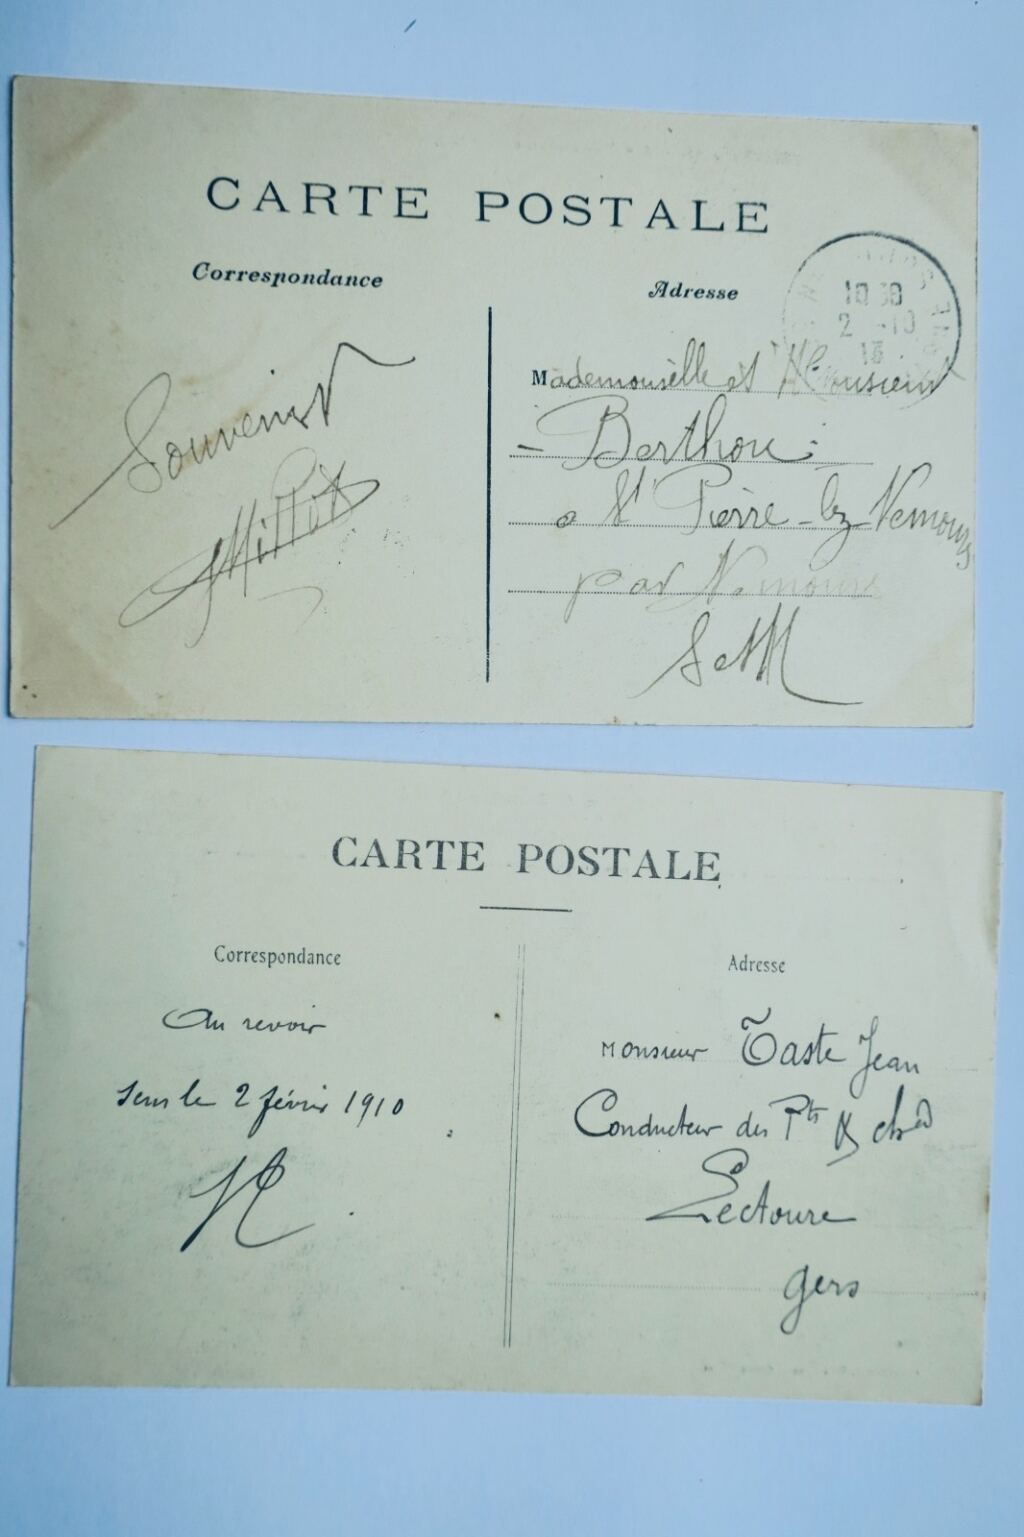 CARTE POSTALE
Correspondance
Adresse
10 30
2 -10
13
Souvenir
Millot
Mademoiselle et Monsieur
- Berthou :
a St Pierre-lez-Nemours
par Nemours
S et M
CARTE POSTALE
Correspondance
Adresse
Au revoir
le 2 février 1910
Monsieur Taste Jean
Conducteur des Pts & chées
Lectoure
Gers